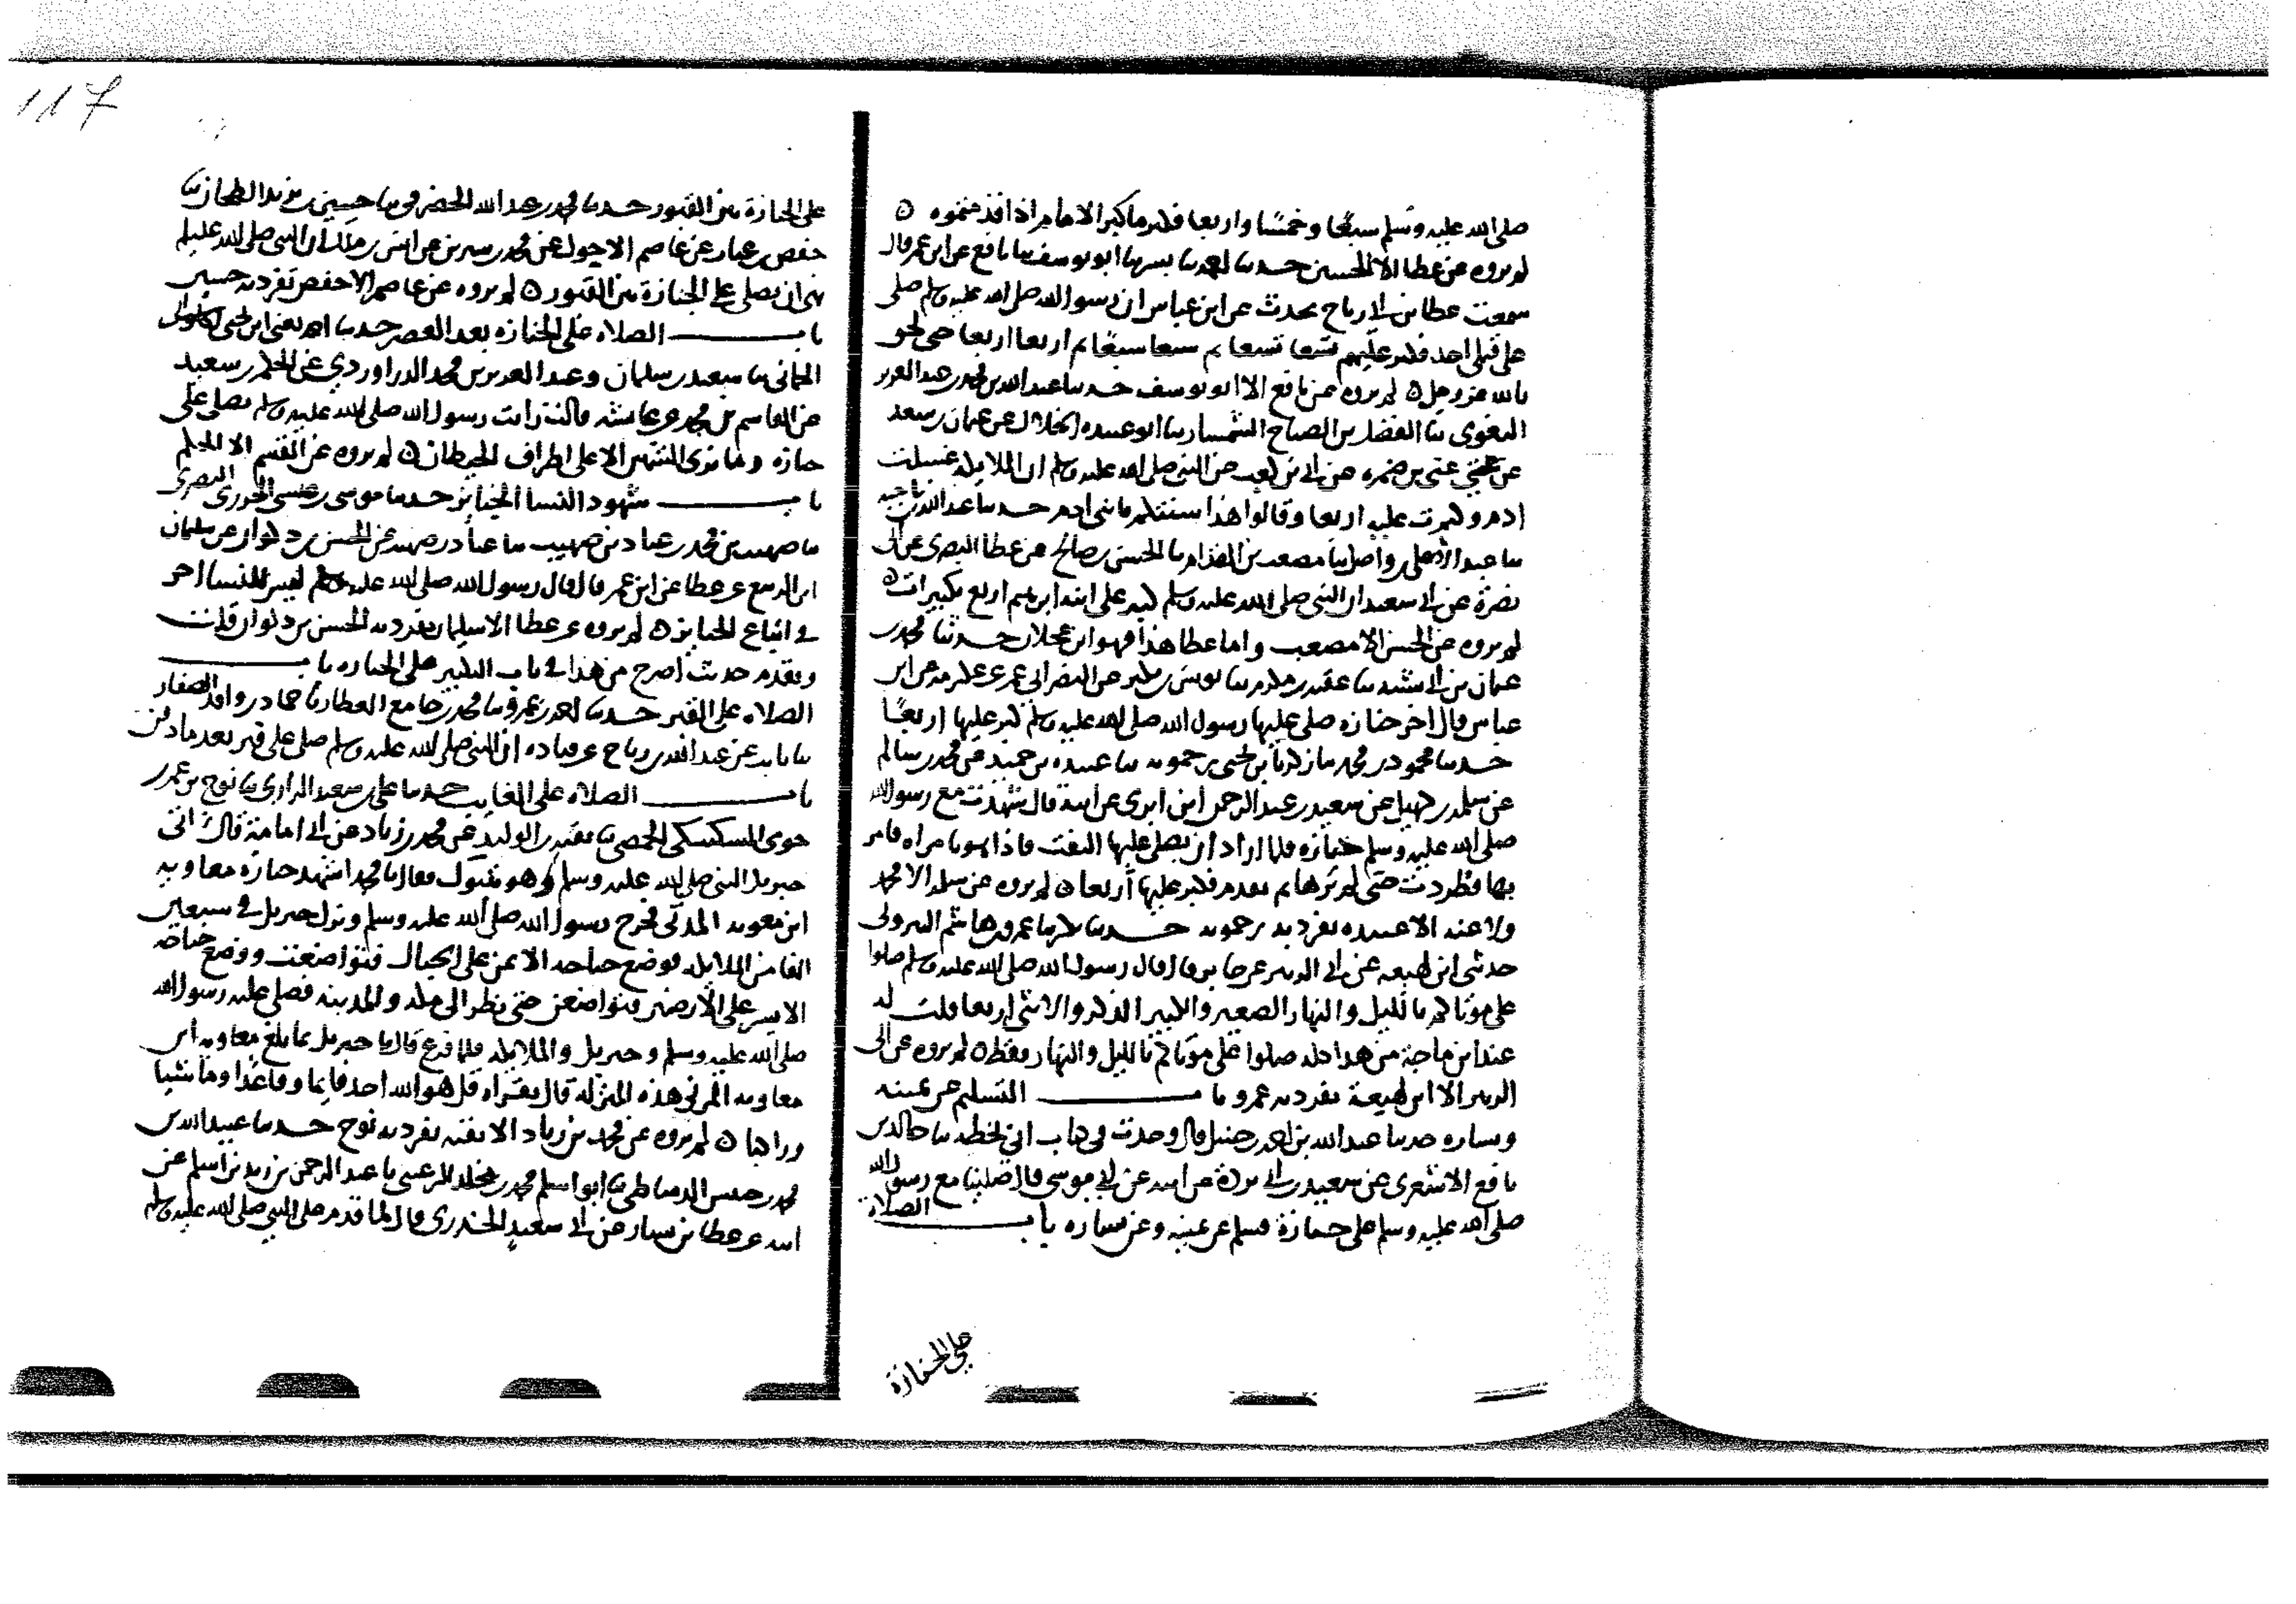 صلى الله عليه وسلم سبعًا وخمسًا واربعا فكبر ما كبر الامام اذا قدمتموه ٥
لم يروه عن عطا الا الحسين حدثنا احمد ثنا بشر ثنا ابو يوسف ثنا نافع عن ابن عمر قال
سمعت عطا بن ابي رباح يحدث عن ابن عباس ان رسول الله صلى الله عليه وسلم صلى
على قتلى احد فكبر عليهم تسعا تسعا ثم سبعا سبعًا ثم اربعا اربعا حتى لحق
بالله عز وجل ٥ لم يروه عن نافع الا ابو يوسف حدثنا عبد الله بن محمد بن عبد العزيز
البغوى ثنا الفضل بن الصباح السمسار ثنا ابو عبيده الحداد عن عثمان بن سعد
عن عتى بن ضمره عن ابي بن كعب عن النبي صلى الله عليه وسلم ان الملايكه غسلت
ادم وكبرت عليه اربعا وقالوا هذا سنتكم يا بنى ادم حدثنا عبد الله بن ناجيه
ثنا عبد الاعلى بن واصل ثنا مصعب بن المقدام ثنا الحسن بن صالح عن عطا البصرى عن ابي
نضرة عن ابي سعيد ان النبي صلى الله عليه وسلم كبر على ابنه ابرهيم اربع تكبيرات ٥
لم يروه عن الحسن الا مصعب واما عطا هذا فهو ابن عجلان حدثنا محمد بن
عثمان بن ابي شيبه ثنا عقبه بن مكرم ثنا يونس بن بكير عن النضر ابي عمر عن عكرمه عن ابن
عباس قال اخر جنازه صلى عليها رسول الله صلى الله عليه وسلم كبر عليها اربعًا
حدثنا محمود بن محمد ثنا زكريا بن يحيى بن رحمويه ثنا عبيده بن حميد عن محمد بن سالم
عن سلمه بن كهيل عن سعيد بن عبد الرحمن ابن ابزى عن ابيه قال شهدت مع رسول الله
صلى الله عليه وسلم جنازه فلما اراد ان يصلى عليها التفت فاذا هو بامراه فامر
بها فطردت حتى لم يرها ثم تقدم فكبر عليها اربعا ٥ لم يروه عن سلمه الا محمد
ولا عنه الا عبيده تفرد به رحمويه حدثنا بكر ثنا عمرو بن هاشم البيروتى
حدثنى ابن لهيعه عن ابي الزبير عن جابر قال قال رسول الله صلى الله عليه وسلم صلوا
على موتاكم بالليل والنهار الصغير والكبير الذكر والانثى اربعا قلت له
عند ابن ماجة من هذا كله صلوا على موتاكم بالليل والنهار فقط ٥ لم يروه عن ابي
الزبير الا ابن لهيعة تفرد به عمرو باب التسليم عن يمينه
ويساره حدثنا عبد الله بن احمد بن حنبل قال وجدت في كتاب ابي بخطه ثنا خالد بن
نافع الاشعرى عن سعيد بن ابي بردة عن ابيه عن ابي موسى قال صلينا مع رسول الله
صلى الله عليه وسلم على جنازة فسلم عن يمينه وعن يساره باب الصلاة
على الجنازة
117
على الجنازة بين القبور حدثنا محمد بن عبد الله الحضرمى ثنا حسين بن يزيد الطحان ثنا
حفص بن غياث عن عاصم الاحول عن محمد بن سيرين عن انس بن ملك ان النبي صلى الله عليه وسلم
نهى ان يصلى على الجنازة بين القبور ٥ لم يروه عن عاصم الا حفص تفرد به حسين
باب الصلاه على الجنازه بعد العصر حدثنا احمد يعنى ابن يحيى الحلوانى
الحمانى ثنا سعيد بن سلمان وعبد العزيز بن محمد الدراوردي عن الحكم بن سعيد
عن القاسم بن محمد عن عائشه قالت رايت رسول الله صلى الله عليه وسلم يصلى على
جنازه وما نرى الشمس الا على اطراف الحيطان ٥ لم يروه عن القسم الا الحكم
باب شهود النسا الجنايز حدثنا موسى بن عيسى الجزرى البصرى
ثنا صهيب بن محمد بن عباد بن صهيب ثنا عباد بن صهيب عن الحسن بن ذكوان عن سليمان
ابن الربيع عن عطا عن ابن عمر قال قال رسول الله صلى الله عليه وسلم ليس للنسا اجر
في اتباع الجنايز ٥ لم يروه عن عطا الا سليمان تفرد به الحسن بن ذكوان قلت
وتقدم حديث اصرح من هذا في باب التكبير على الجنازه باب
الصلاه على القبر حدثنا احمد بن عمرو ثنا محمد بن جامع العطار ثنا حماد بن واقد الصفار
ثنا ثابت عن عبد الله بن رباح عن قتاده ان النبي صلى الله عليه وسلم صلى على قبر بعد ما دفن
باب الصلاه على الغايب حدثنا على بن سعيد الرازى ثنا نوح بن عمر بن
حوى السكسكى الحمصى ثنا بقيه بن الوليد عن محمد بن زياد عن ابي امامة قال اتى
جبريل النبي صلى الله عليه وسلم وهو بتبوك فقال يا محمد اشهد جنازه معاويه
ابن معويه المزنى فخرج رسول الله صلى الله عليه وسلم ونزل جبريل في سبعين
الفا من الملايكه فوضع جناحه الايمن على الجبال فتواضعت ووضع جناحه
الايسر على الارضين فتواضعن حتى نظر الى مكه والمدينه فصلى عليه رسول الله
صلى الله عليه وسلم وجبريل والملايكه فلما فرغ قال يا جبريل بما بلغ معاويه ابن
معاويه المزنى هذه المنزله قال بقراه قل هو الله احد قايما وقاعدا وماشيا
وراكبا ٥ لم يروه عن محمد بن زياد الا بقيه تفرد به نوح حدثنا عبيد الله بن
محمد بن خنيس الدمياطى ثنا ابو اسلم محمد بن مخلد الرعينى ثنا عبد الرحمن بن زيد بن اسلم عن
ابيه عن عطا بن يسار عن ابي سعيد الخدرى قال لما قدم على النبي صلى الله عليه وسلم